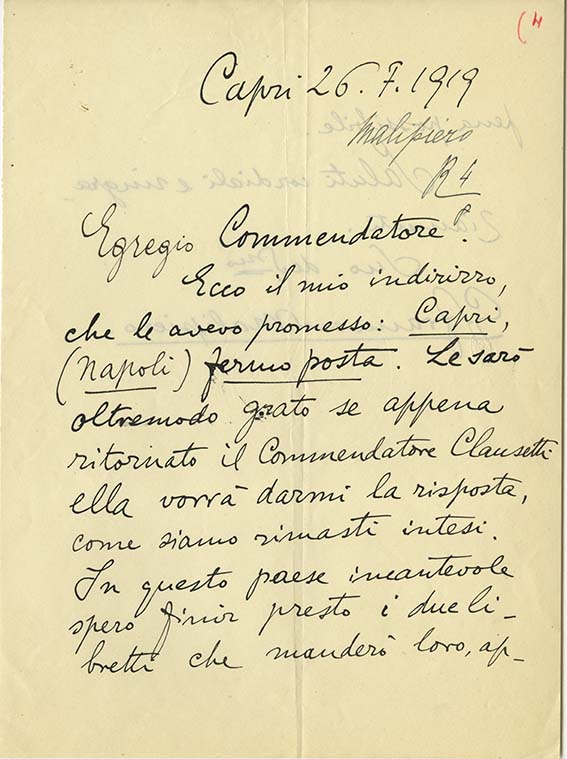 (4
Capri 26.7.1919
Malipiero
R 4
Egregio Commendatore.
Ecco il mio indirizzo,
che le avevo promesso: Capri,
(Napoli) fermo posta. Le sarò
oltremodo grato se appena
ritornato il Commendatore Clausetti
ella vorrà darmi la risposta,
come siamo rimasti intesi.
In questo paese incantevole
spero finir presto i due li-
bretti che manderò loro, ap-